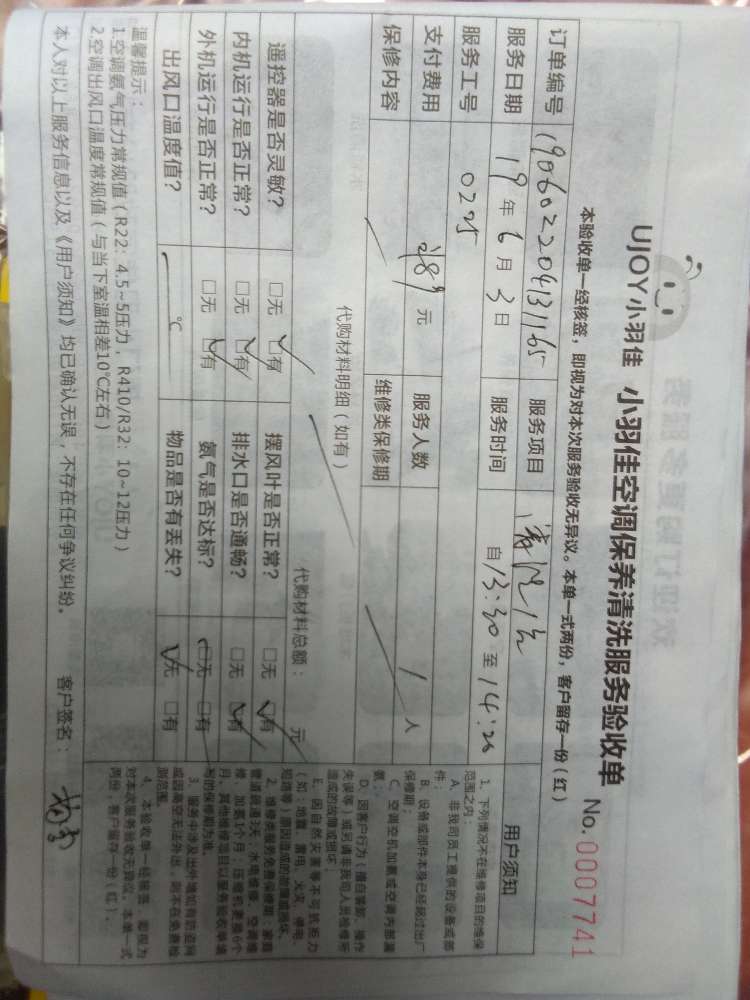 UJOY小羽佳 小羽佳空调保养清洗服务验收单 No. 0007741
本验收单一经核签，即视为对本次服务验收无异议。本单一式两份，客户留存一份（红）
订单编号 190602204131165 服务项目
服务日期 19年6月3日 服务时间 自13:30至14:20
服务工号 0225
支付费用 元 服务人数 1人
保修内容 维修类保修期
代购材料明细（如有） 代购材料总额： 元
遥控器是否灵敏？ □无 □有 摆风叶是否正常？ □无 □有
内机运行是否正常？ □无 □有 排水口是否通畅？ □无 □有
外机运行是否正常？ □无 □有 氨气是否达标？ □无 □有
出风口温度值？ ℃ 物品是否有丢失？ □无 □有
温馨提示：
1.空调氨气压力常规值（R22：4.5~5压力，R410/R32：10~12压力）
2.空调出风口温度常规值（与当下室温相差10℃左右）
本人对以上服务信息以及《用户须知》均已确认无误，不存在任何争议纠纷。 客户签名：
用户须知
1、下列情况不在维修项目的维保
范围之内：
A、非我司员工提供的设备或部
件；
B、设备或部件本身已经超过出厂
保修期；
C、空调空机加氨或空调内部漏
氨；
D、因客户行为（擅自装卸、操作
失误等）或另请非我司人员检修所
造成的故障或损坏；
E、因自然灾害等不可抗拒力
（如：地震、雷电、火灾、停电、
短路等）原因造成的故障或损坏。
2、维修类服务免费保修期：家庭
管道疏通3天；水电维修、空调维
修、加氨1个月；压缩机更换6个
月，其他维修项目以服务验收单填
写的保修期为准。
3、服务中涉及出外墙如有防盗网
或因高空无法外出，则不在免费检
测范围。
4、本验收单一经核签，即视为
对本次服务验收无异议。本单一式
两份，客户留存一份（红）。